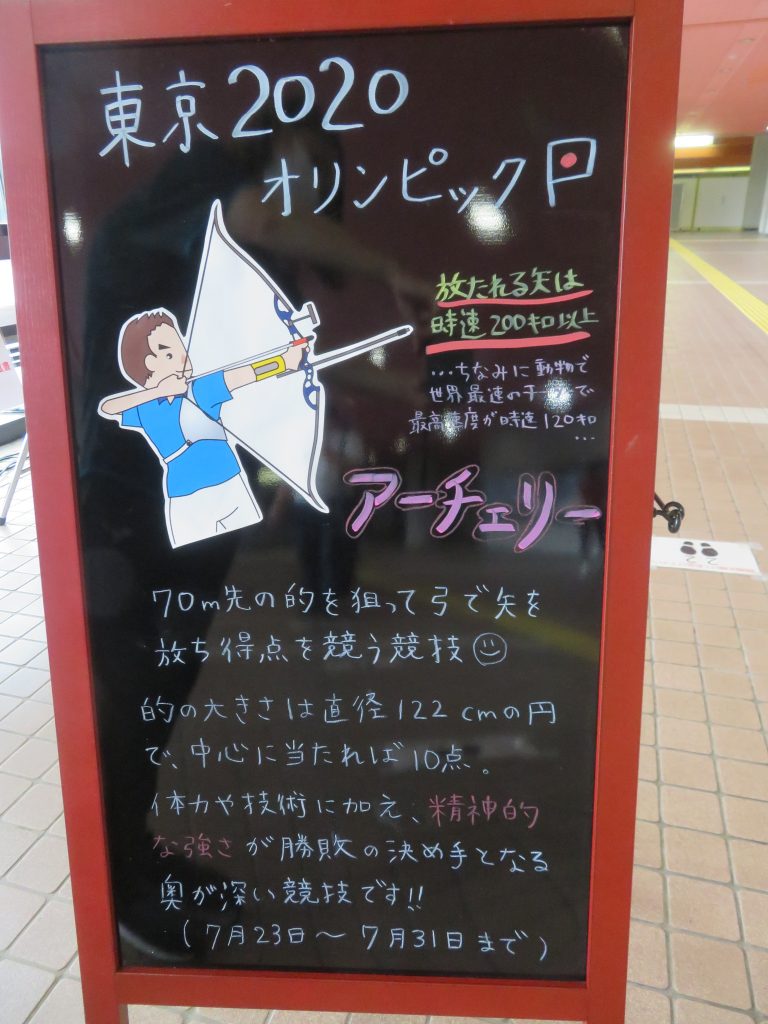 東京2020
オリンピック
放たれる矢は
時速200キロ以上
…ちなみに動物で
世界最速のチーターで
最高速度が時速120キロ
…
アーチェリー
70m先の的を狙って弓で矢を
放ち得点を競う競技
的の大きさは直径122cmの円
で、中心に当たれば10点。
体力や技術に加え、精神的
な強さが勝敗の決め手となる
奥が深い競技です!!
(7月23日～7月31日まで)